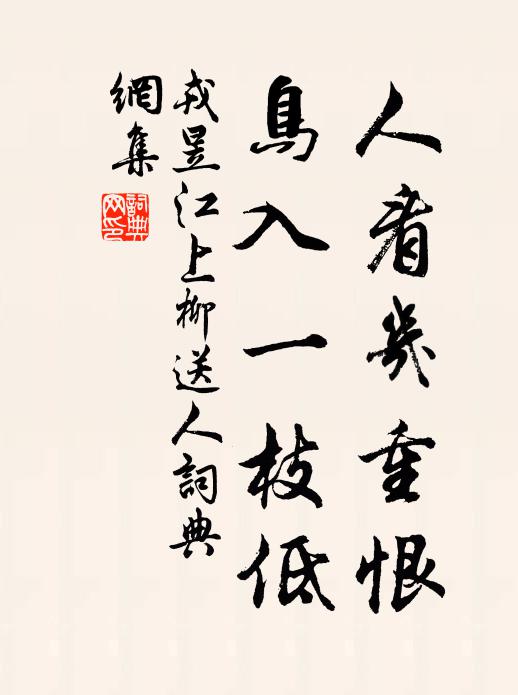 人看幾重恨
鳥入一枝低
戎昱江上柳送人詞典
網集
詞典
网印